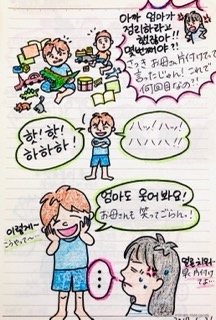 아까 엄마가
정리하라고
했잖아!!
몇번째야?!
さっき お母さん片付けてって
言ったじゃん! これで
何回目なの?!
핫! 핫!
하하하!
ハッ! ハッ!
ハハハ!!
엄마도 웃어봐요!
お母さんも 笑ってごらん!
이렇게~
こうやって~
...
얼른 치워.
片付け
てよ…